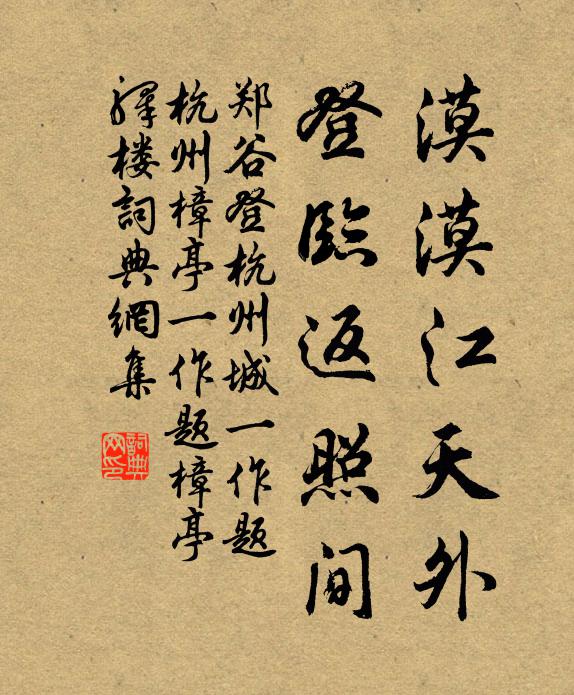 漠漠江天外
登臨返照间
郑谷登杭州城一作题
杭州樟亭一作题樟亭
驛楼詞典網集
詞典网印